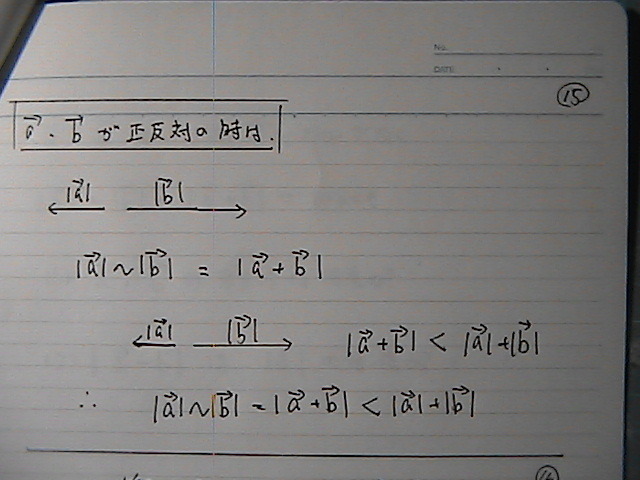 No.
DATE ・ ・
⑮
a⃗、b⃗ が正反対の時は.
|a⃗| |b⃗|
|a⃗|〜|b⃗| = |a⃗+b⃗|
|a⃗| |b⃗| |a⃗+b⃗| < |a⃗|+|b⃗|
∴ |a⃗|〜|b⃗| = |a⃗+b⃗| < |a⃗|+|b⃗|